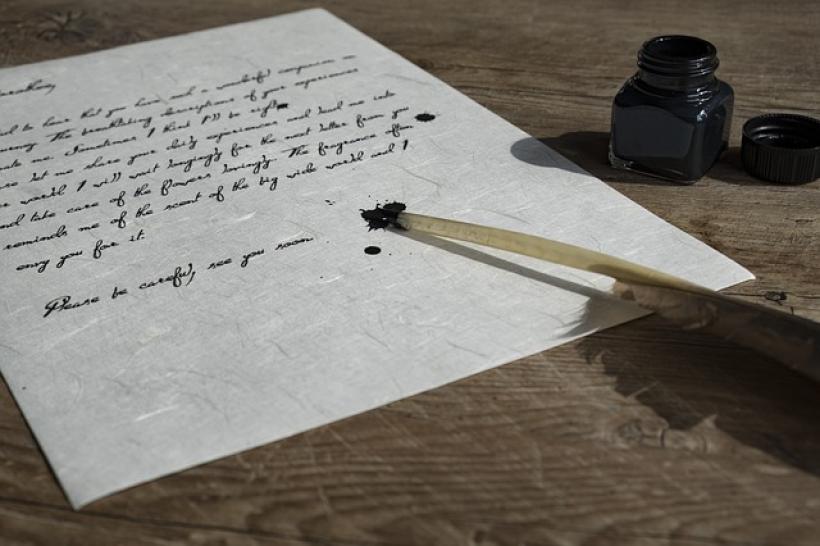 to hear that you have and a wonderful companion on
The breathtaking descriptions of your experiences
me. Sometimes I think I'll be right
let me share your daily experiences and lead me into
world I will wait longingly for the next letter from you
take care of the flowers lovingly. The fragrance often
reminds me of the scent of the big wide world and I
envy you for it.
Please be careful, see you soon